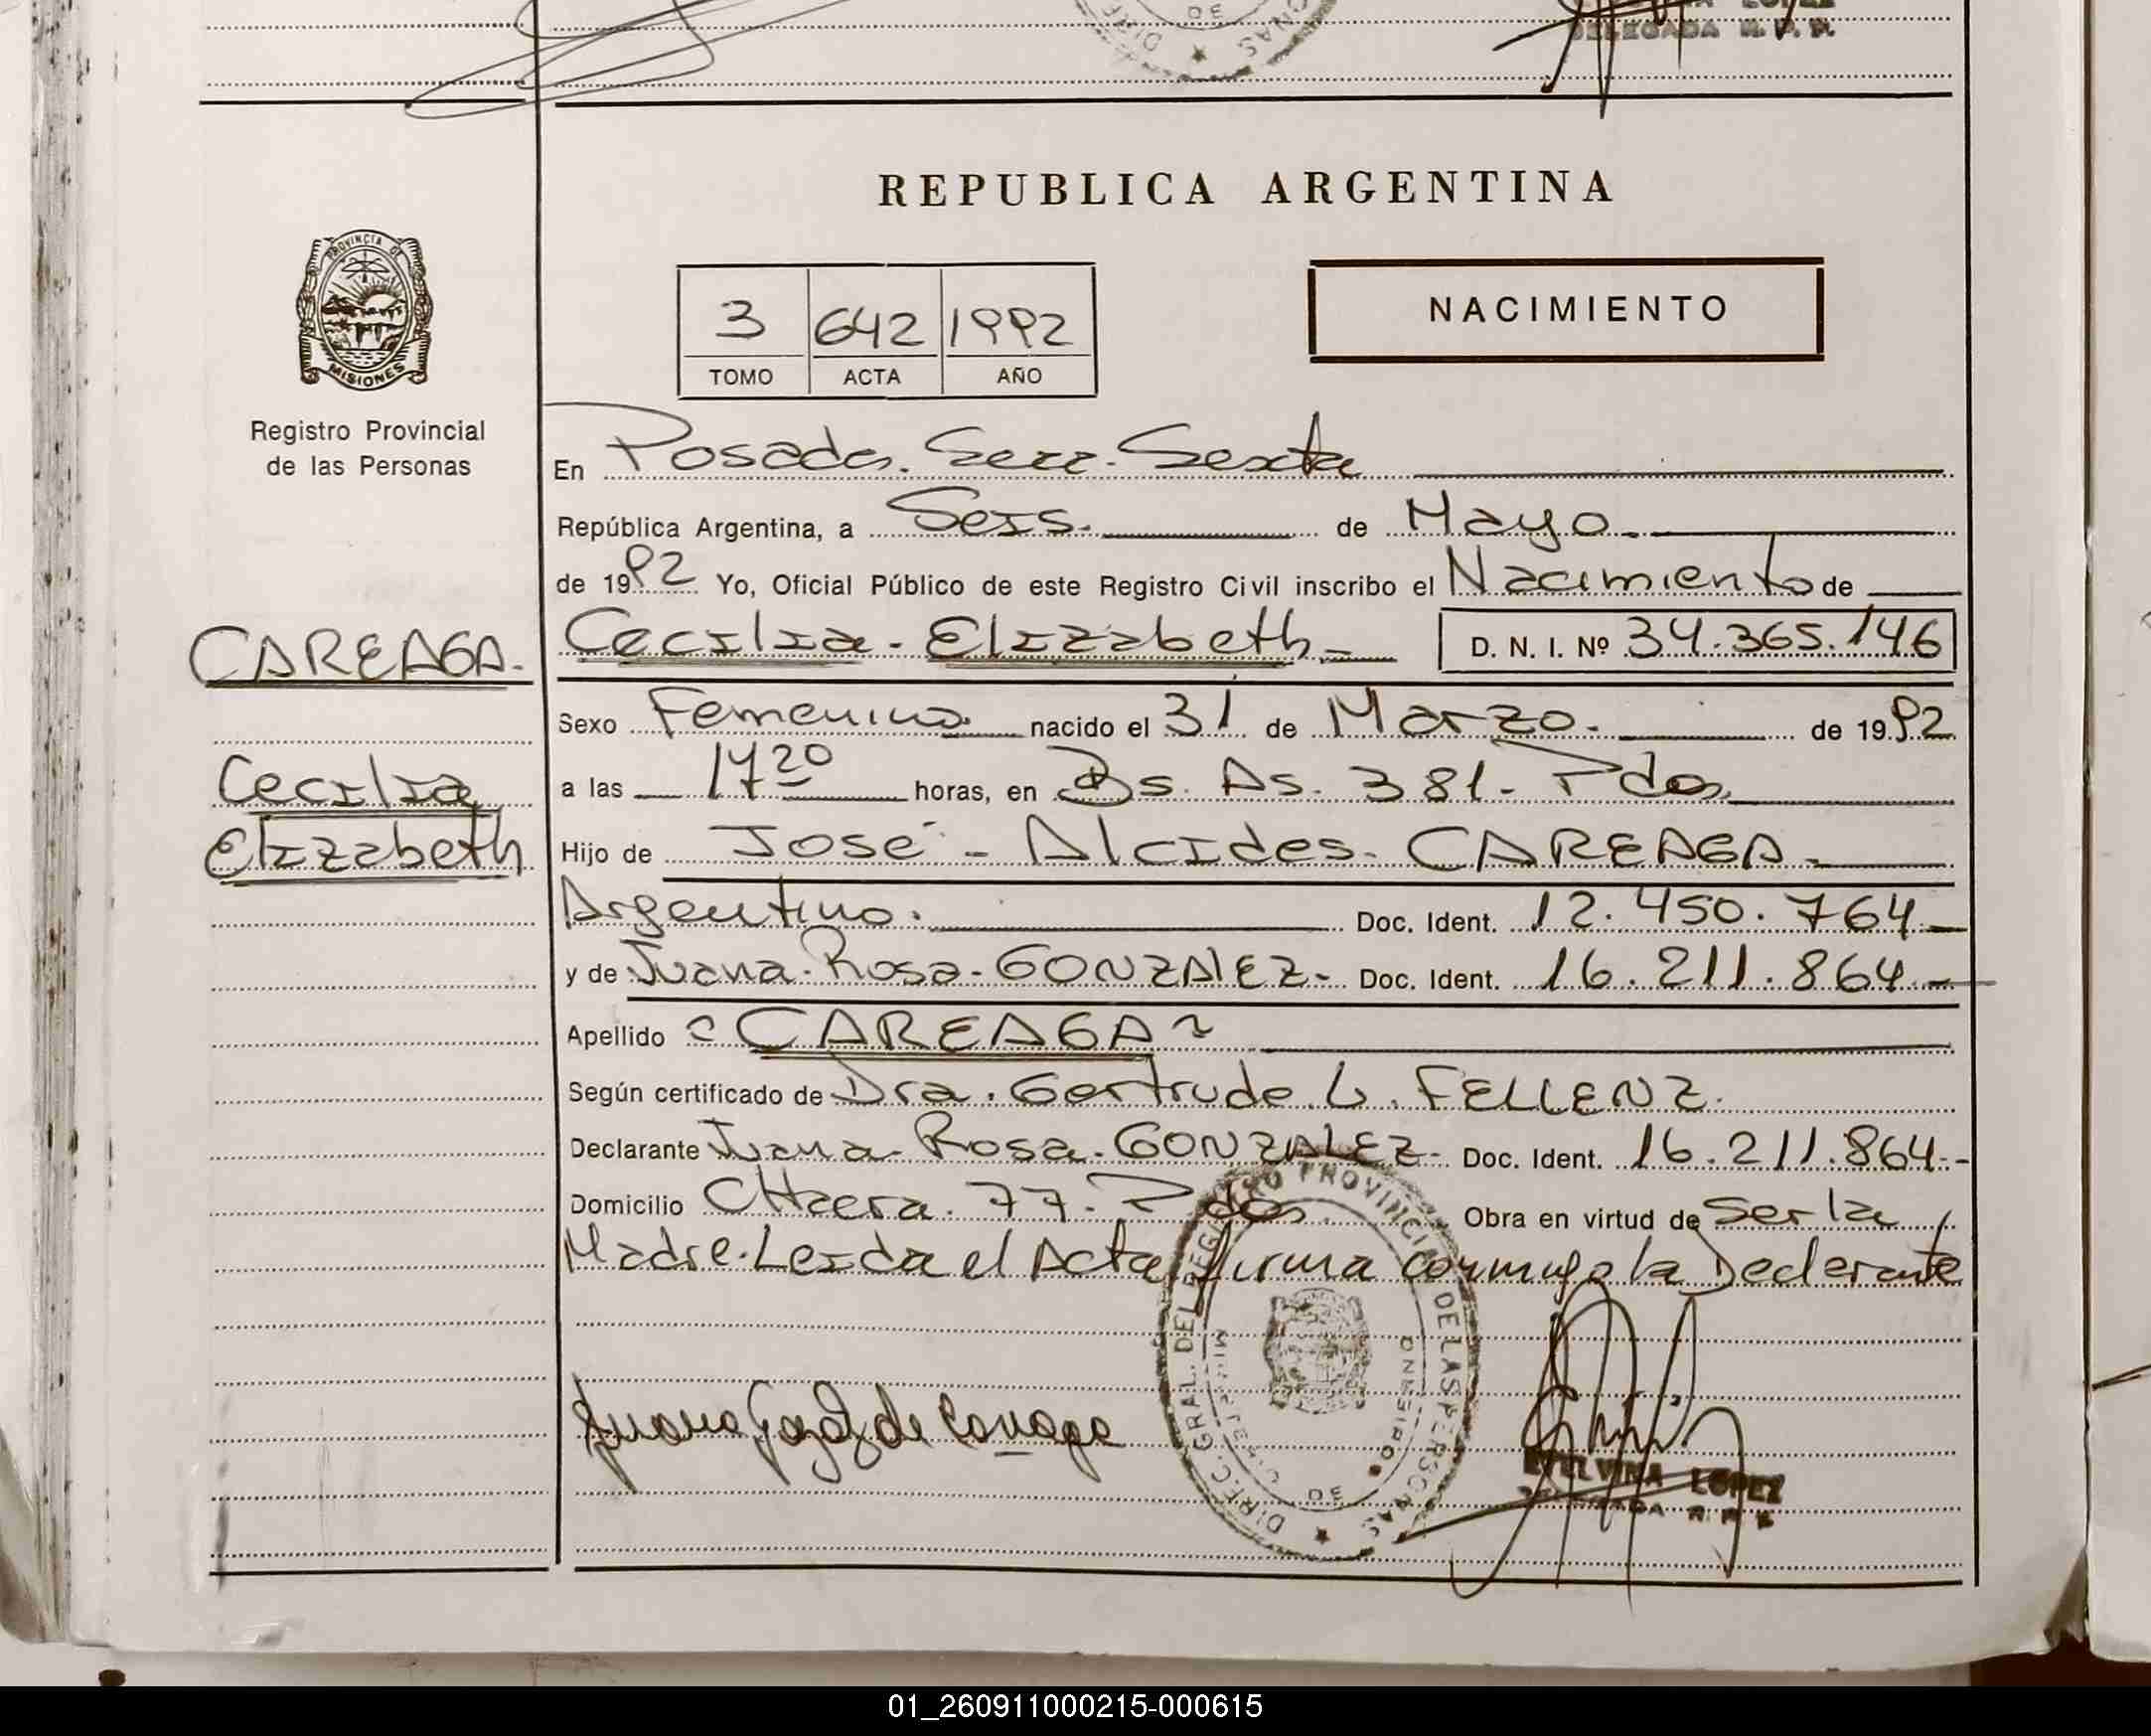 LOPEZ
DELEGADA R. P. P.
REPUBLICA ARGENTINA
PROVINCIA DE
MISIONES
Registro Provincial
de las Personas
3 642 1992
TOMO ACTA AÑO
NACIMIENTO
En Posadas. Secc. Sexta
República Argentina, a Seis. de Mayo.
de 1992 Yo, Oficial Público de este Registro Civil inscribo el Nacimiento de
CAREAGA.
Cecilia - Elizabeth D. N. I. Nº 34.365.146
Sexo Femenino nacido el 31 de Marzo. de 1992
Cecilia
Elizabeth
a las 17 20 horas, en Bs. As. 381 - Pdas.
Hijo de José - Alcides - CAREAGA -
Argentino. Doc. Ident. 12.450.764 -
y de Juana - Rosa - GONZALEZ - Doc. Ident. 16.211.864 -
Apellido CAREAGA
Según certificado de Dra. Gertrude L. FELLENZ.
Declarante Juana - Rosa - GONZALEZ - Doc. Ident. 16.211.864 -
Domicilio CHacra. 77 - Pdas. Obra en virtud de Ser la
Madre. Leida el Acta firma conmigo la Declarante
DIREC. GRAL. DEL REGISTRO PROVINCIAL DE LAS PERSONAS
Juana Gonzalez de Careaga
LOPEZ
DELEGADA R. P. P.
01_260911000215-000615